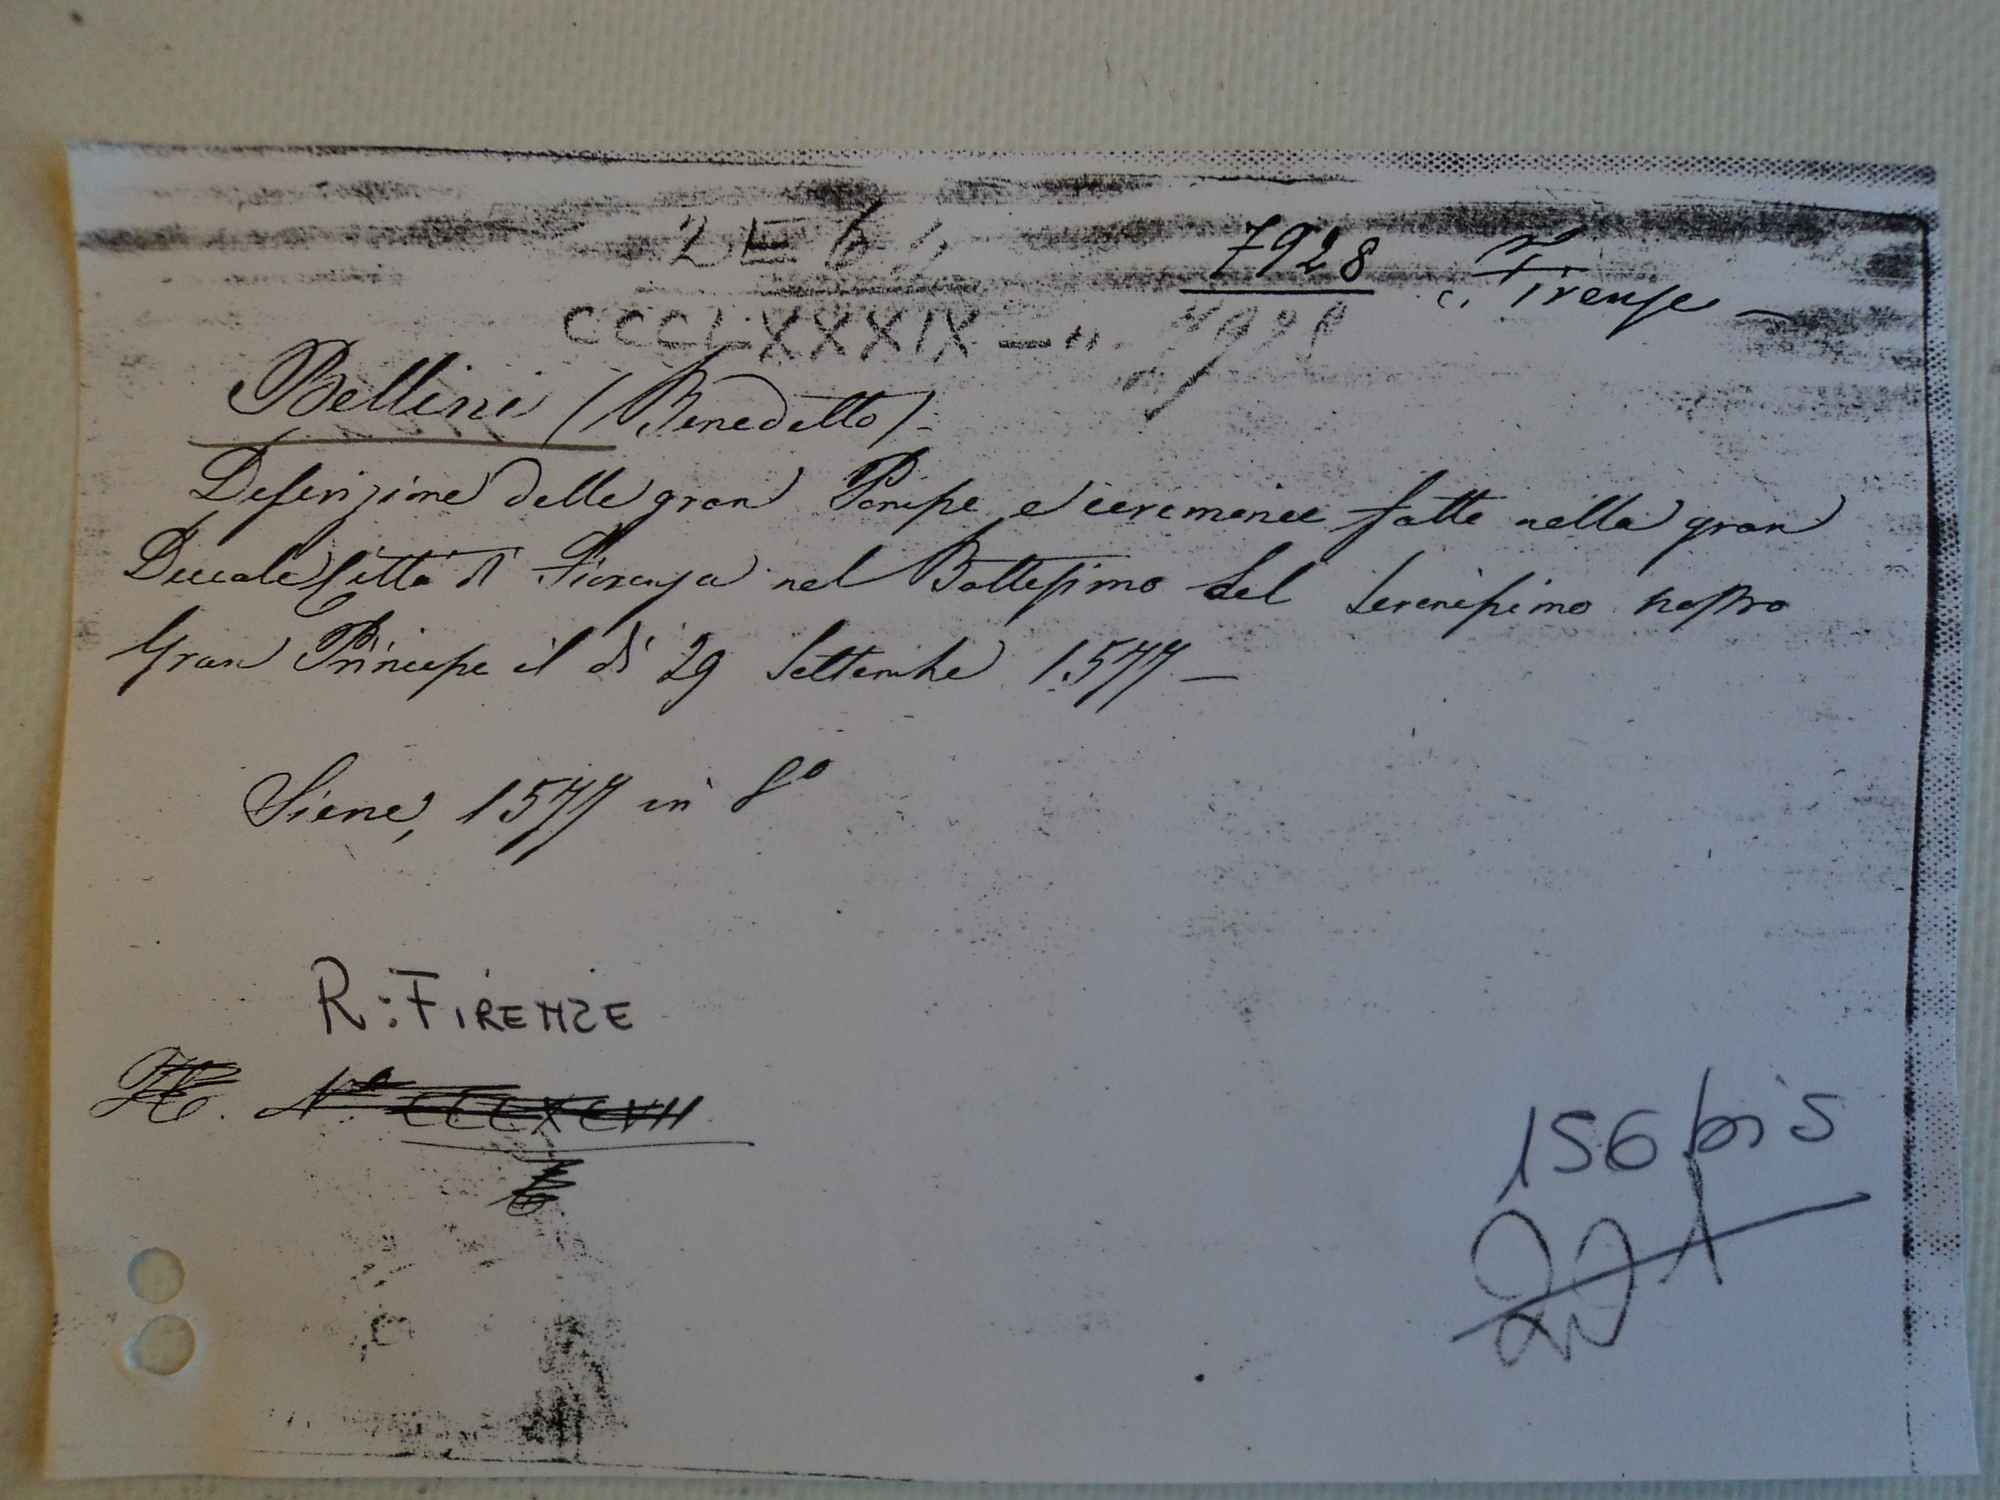 2 E 6 4
7928
c. Firenze
CCCLXXXIX — 11. 7928
Bellini (Benedetto)-
Descrizione delle gran Pompe e ceremonie fatte nella gran
Ducale Città di Fiorenza nel Battesimo del Serenissimo nostro
Gran Principe il dì 29 Settembre 1577 —
Siena, 1577 in 8°
R: FIRENZE
N° CCCXCVII
156 bis
221